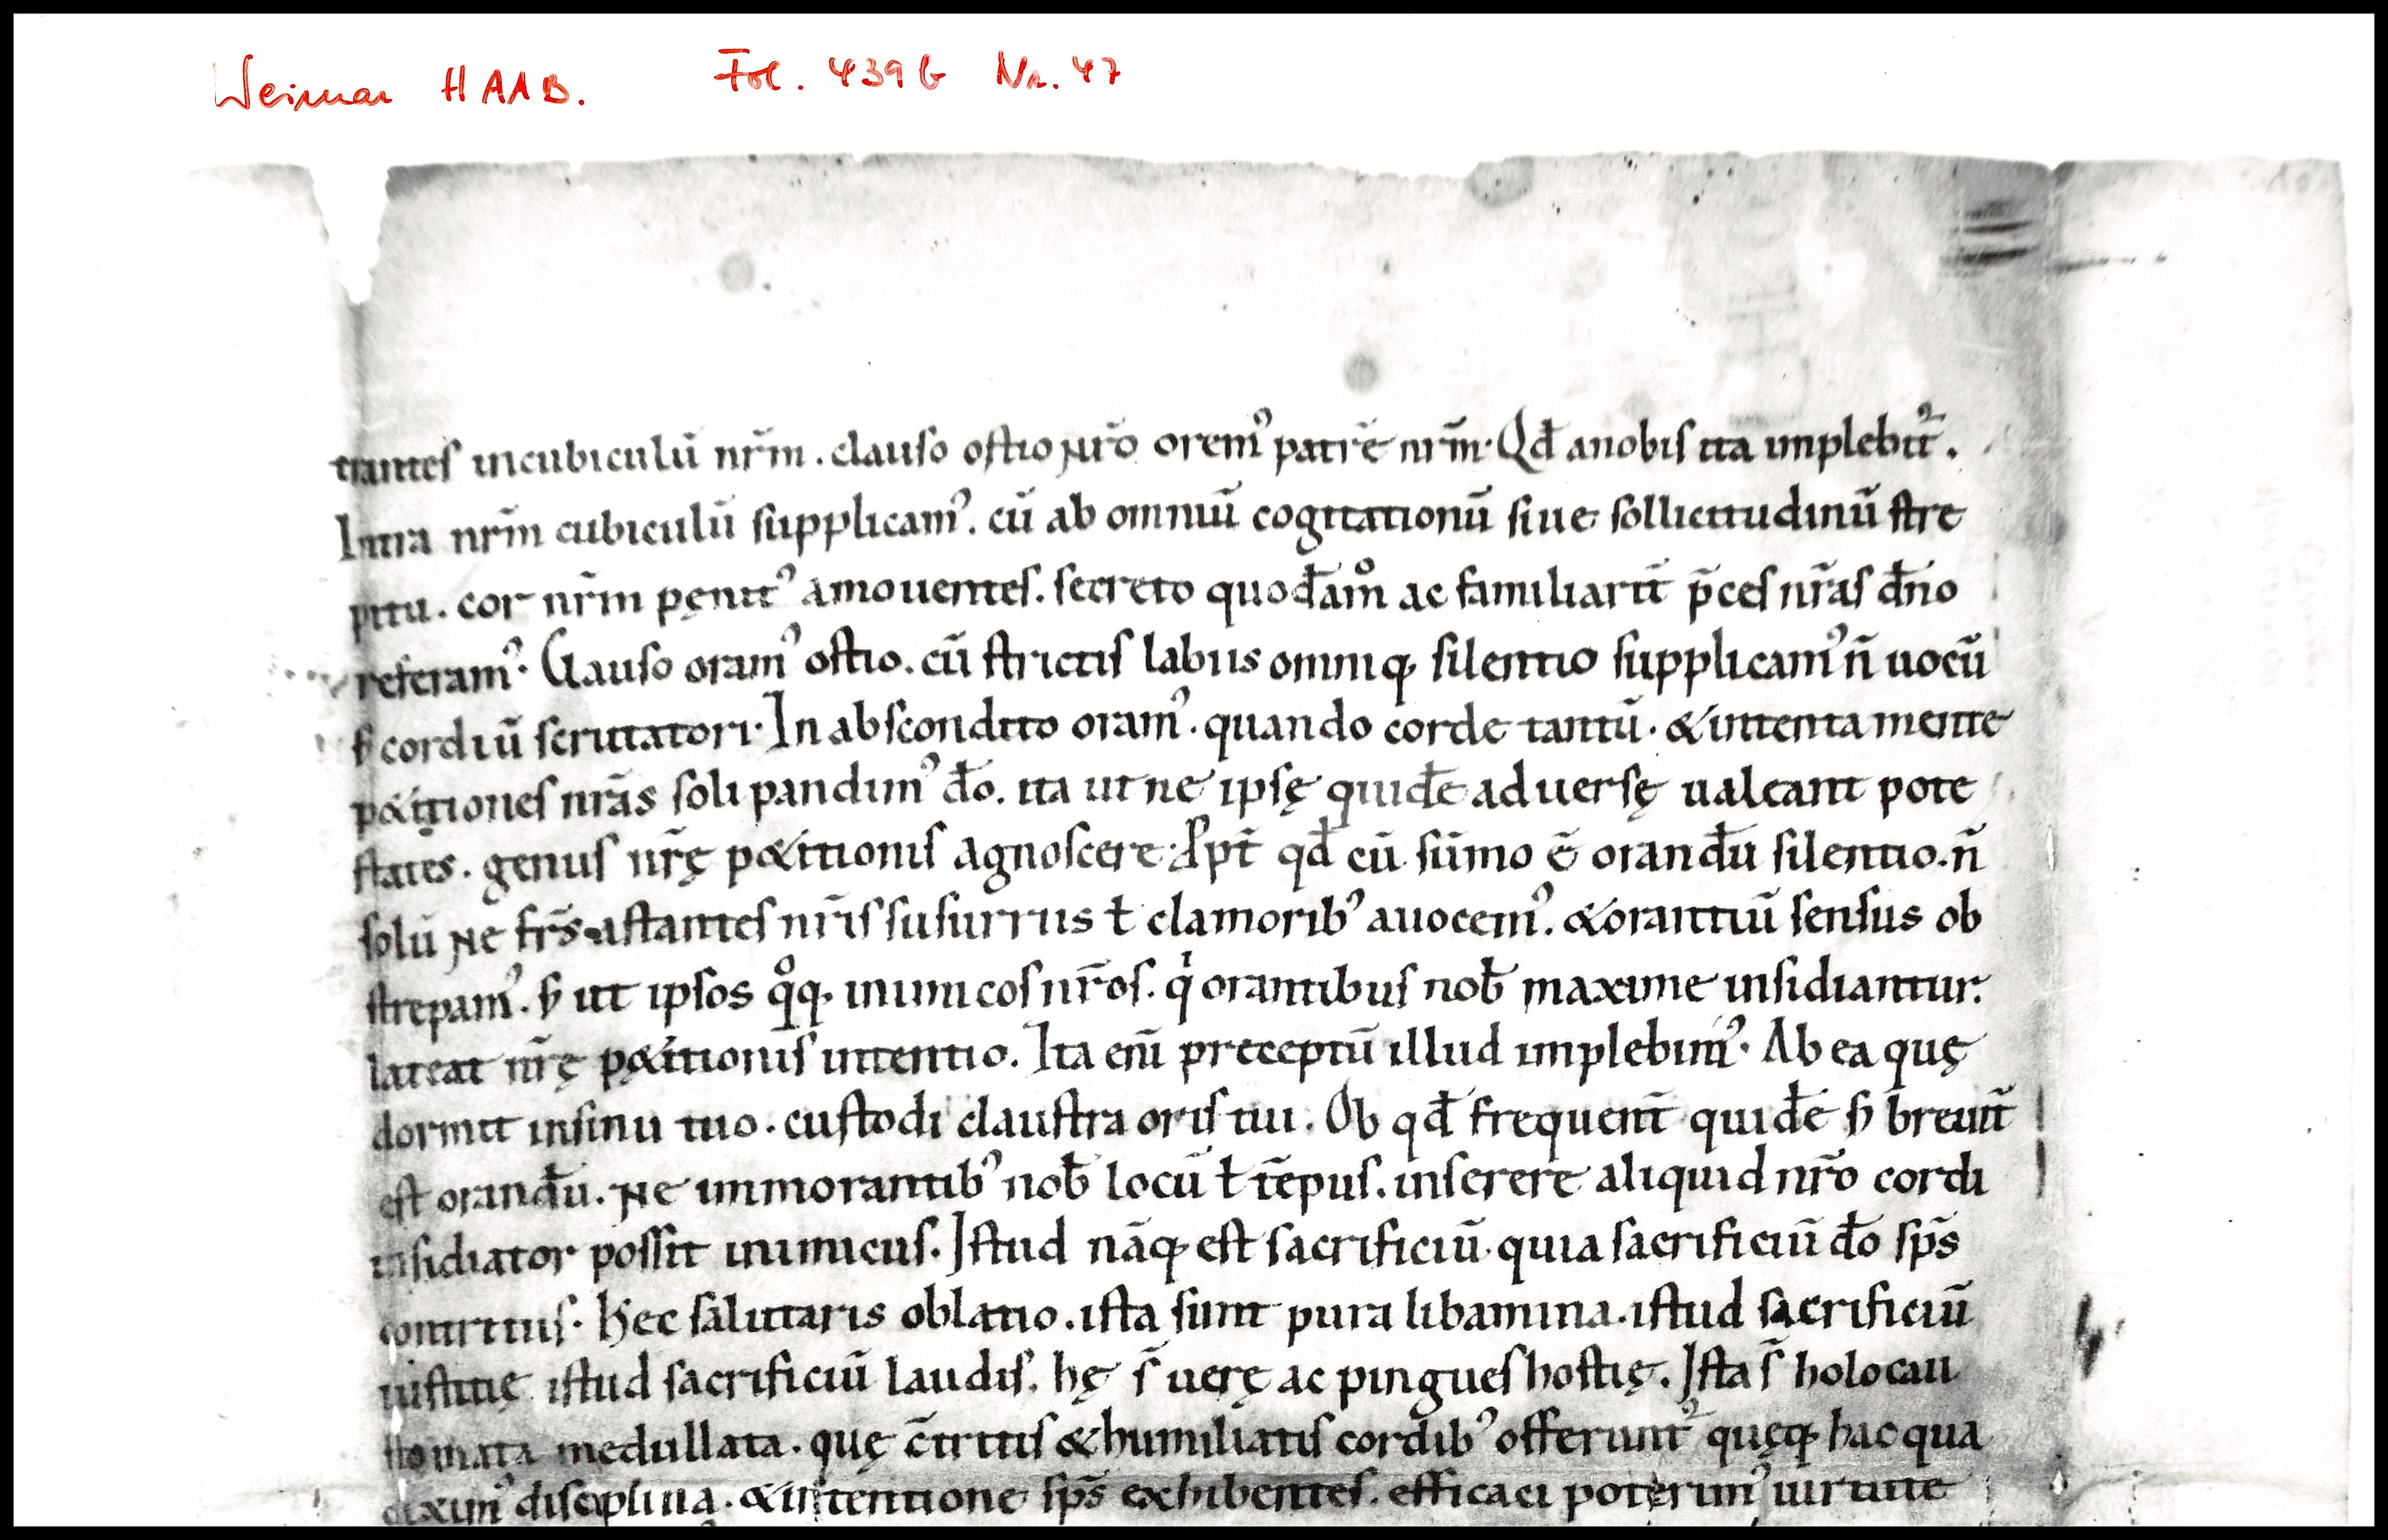 Weimar HAAB. Fol. 439b Nr. 47
trantes incubiculū nr̄m. clauso ostio nr̄o orem᾽ patrē nr̄m. Qđ anobis ita implebit᷑.
Intra nr̄m cubiculū supplicam᾽. cū ab omniū cogitationū siue sollicitudinū stre
pitu. cor nr̄m pęnit᾽ amouentes. secreto quodāmͦ ac familiarit̄ p̄ces nr̄as dn̄o
referam᾽. Clauso oram᾽ ostio. cū strictis labiis omniq; silentio supplicam᾽ n̄ uocū
s; cordiū scrutatori. In abscondito oram᾽. quando corde tantū. & intenta mente
p&itiones nr̄as soli pandim᾽ dō. ita ut ne ipsę quidē aduersę ualeant pote
states. genus nr̄ę p&itionis agnoscere. Ꝓpt̄ qđ cū sūmo ē orandū silentio. n̄
solū ne fr̄s astantes nr̄is susurriis ł clamorib᾽ auocem᾽. & orantiū sensus ob
strepam᾽. s; ut ipsos qͦq; inimicos nr̄os. qⁱ orantibus nob̄ maxime insidiantur.
lateat nr̄ę p&itionis intentio. Ita enī preceptū illud implebim᾽. Ab ea quę
dormit insinu tuo. custodi claustra oris tui. Ob qđ frequent̄ quidē s; breuit̄
est orandū. ne immorantib᾽ nob̄ locū ł tēpus. inserere aliquid nr̄o cordi
insidiator possit inimicus. Istud nāq; est sacrificiū. quia sacrificiū dō sp̄s
contritus. Hec salutaris oblatio. ista sunt pura libamina. istud sacrificiū
iustitię istud sacrificiū laudis. hę s̄ uerę ac pingues hostię. Ista s̄ holocau
stomata medullata. quę c̄tritis & humiliatis cordib᾽ offerunt᷑ quęq; hac qua
dixim᾽ disciplina. & intentione sp̄s exhibentes. efficaci poterim᾽ uirtute